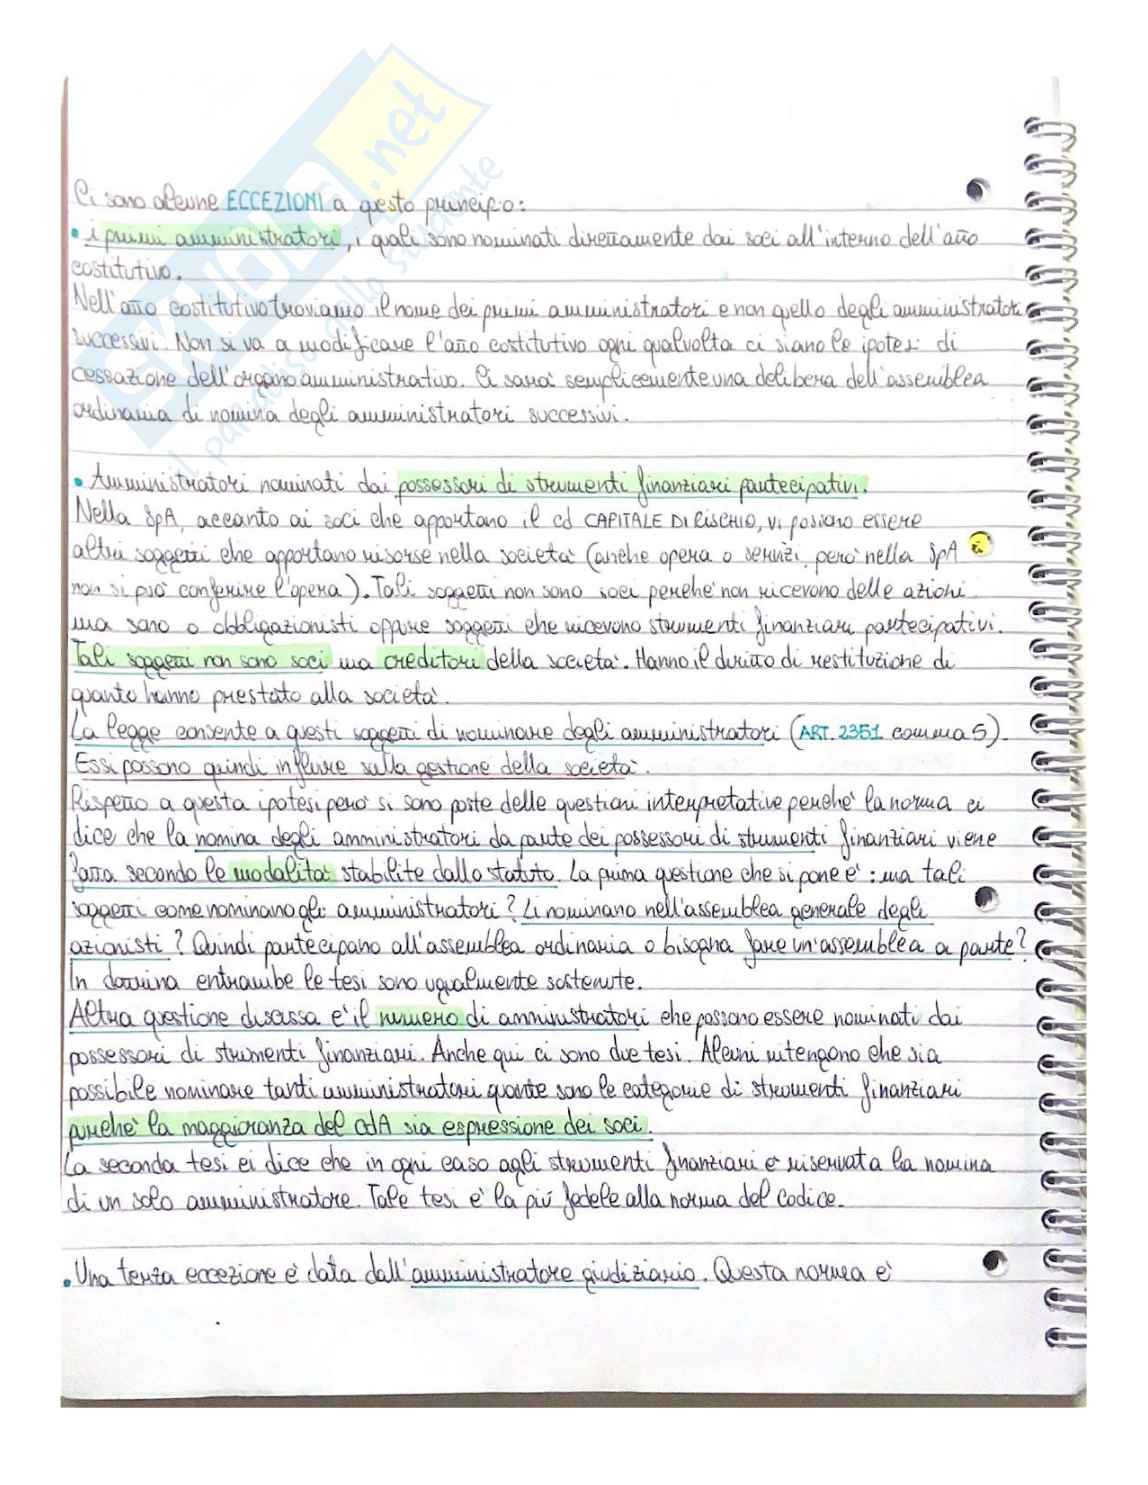 SKUOLA.net
il paradiso dello studente
Ci sono alcune ECCEZIONI a questo principio:
• i primi amministratori, i quali sono nominati direttamente dai soci all'interno dell'atto
costitutivo.
Nell'atto costitutivo troviamo il nome dei primi amministratori e non quello degli amministratori
successivi. Non si va a modificare l'atto costitutivo ogni qualvolta ci siano le ipotesi di
cessazione dell'organo amministrativo. Ci sarà semplicemente una delibera dell'assemblea
ordinaria di nomina degli amministratori successivi.
• Amministratori nominati dai possessori di strumenti finanziari partecipativi.
Nella SpA, accanto ai soci che apportano il cd CAPITALE DI RISCHIO, vi possono essere
altri soggetti che apportano risorse nella società (anche opera o servizi, però nella SpA
non si può conferire l'opera). Tali soggetti non sono soci perché non ricevono delle azioni
ma sono o obbligazionisti oppure soggetti che ricevono strumenti finanziari partecipativi.
Tali soggetti non sono soci ma creditori della società. Hanno il diritto di restituzione di
quanto hanno prestato alla società.
La legge consente a questi soggetti di nominare degli amministratori (ART. 2351 comma 5).
Essi possono quindi influire sulla gestione della società.
Rispetto a questa ipotesi però si sono poste delle questioni interpretative perché la norma ci
dice che la nomina degli amministratori da parte dei possessori di strumenti finanziari viene
fatta secondo le modalità stabilite dallo statuto. La prima questione che si pone è: ma tali
soggetti come nominano gli amministratori? Li nominano nell'assemblea generale degli
azionisti? Quindi partecipano all'assemblea ordinaria o bisogna fare un'assemblea a parte?
In dottrina entrambe le tesi sono ugualmente sostenute.
Altra questione discussa è il numero di amministratori che possono essere nominati dai
possessori di strumenti finanziari. Anche qui ci sono due tesi. Alcuni ritengono che sia
possibile nominare tanti amministratori quante sono le categorie di strumenti finanziari
purché la maggioranza del CdA sia espressione dei soci.
La seconda tesi ci dice che in ogni caso agli strumenti finanziari è riservata la nomina
di un solo amministratore. Tale tesi è la più fedele alla norma del codice.
• Una terza eccezione è data dall'amministratore giudiziario. Questa norma è